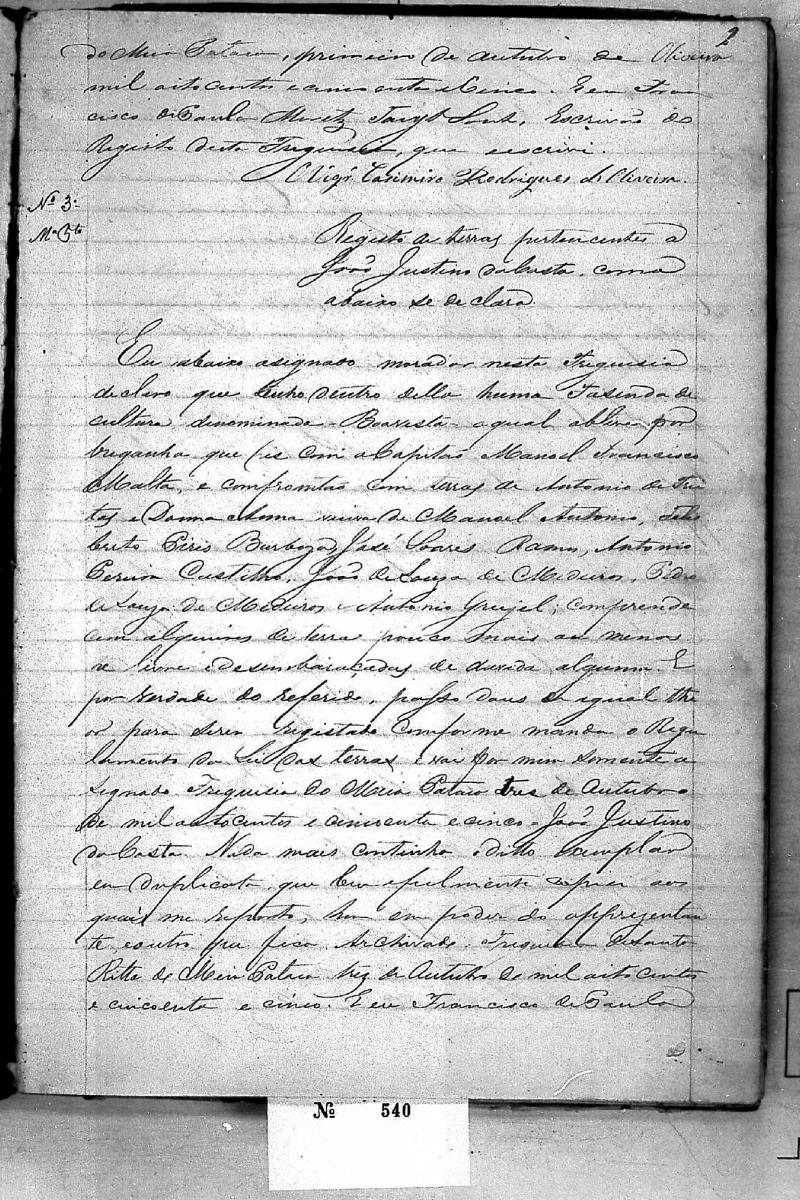 2
do Meia Pataca, primeiro de outubro de Oliveira
mil oito centos e cincoenta e Cinco. E eu Fran
cisco de Paula Moretz Escrivão do
Registo desta Freguesia, que escrevi.
O Vigr.º Casimiro Rodrigues de Oliveira.
Nº 3.
Registo de terras pertencentes a
João Justino da Costa, como
abaixo se declara
Eu abaixo asignado morador nesta Freguesia
declaro que tenho dentro della huma Fasenda de
cultura denominada - Boavista - a qual obtive por
breganha que fis com o Capitão Manoel Francisco
Malta, e confrontão com terras de Antonio de Frei
tas e Donna Anna viuva de Manoel Antonio, Feles
berto Peris Barboza, José Soares Ramos, Antonio
Pereira Castilho, João de Souza de Medeiros, Pedro
de Souza de Medeiros e Antonio comprende
cem alqueires de terra pouco mais ou menos
e livre e desembaraçadas de duvida alguma. E
por verdade do referido, passo dous de igual the
or para serem registado conforme manda o Regu
lamento da Lei das terras e vai por mim somente a
signado Freguesia do Meia Pataca tres de Outubro
de mil oito centos e cincoenta e cinco - João Justino
da Costa. Nada mais continha o ditto exemplar
em duplicata que bem e fielmente copiei aos
quais me reporto, hum em poder do apprezentan
te e outro que fica Archivado. Freguesia de Santa
Ritta do Meia Pataca trez de Outubro de mil oito centos
e cincoenta e cinco. E eu Francisco de Paula
Nº 540